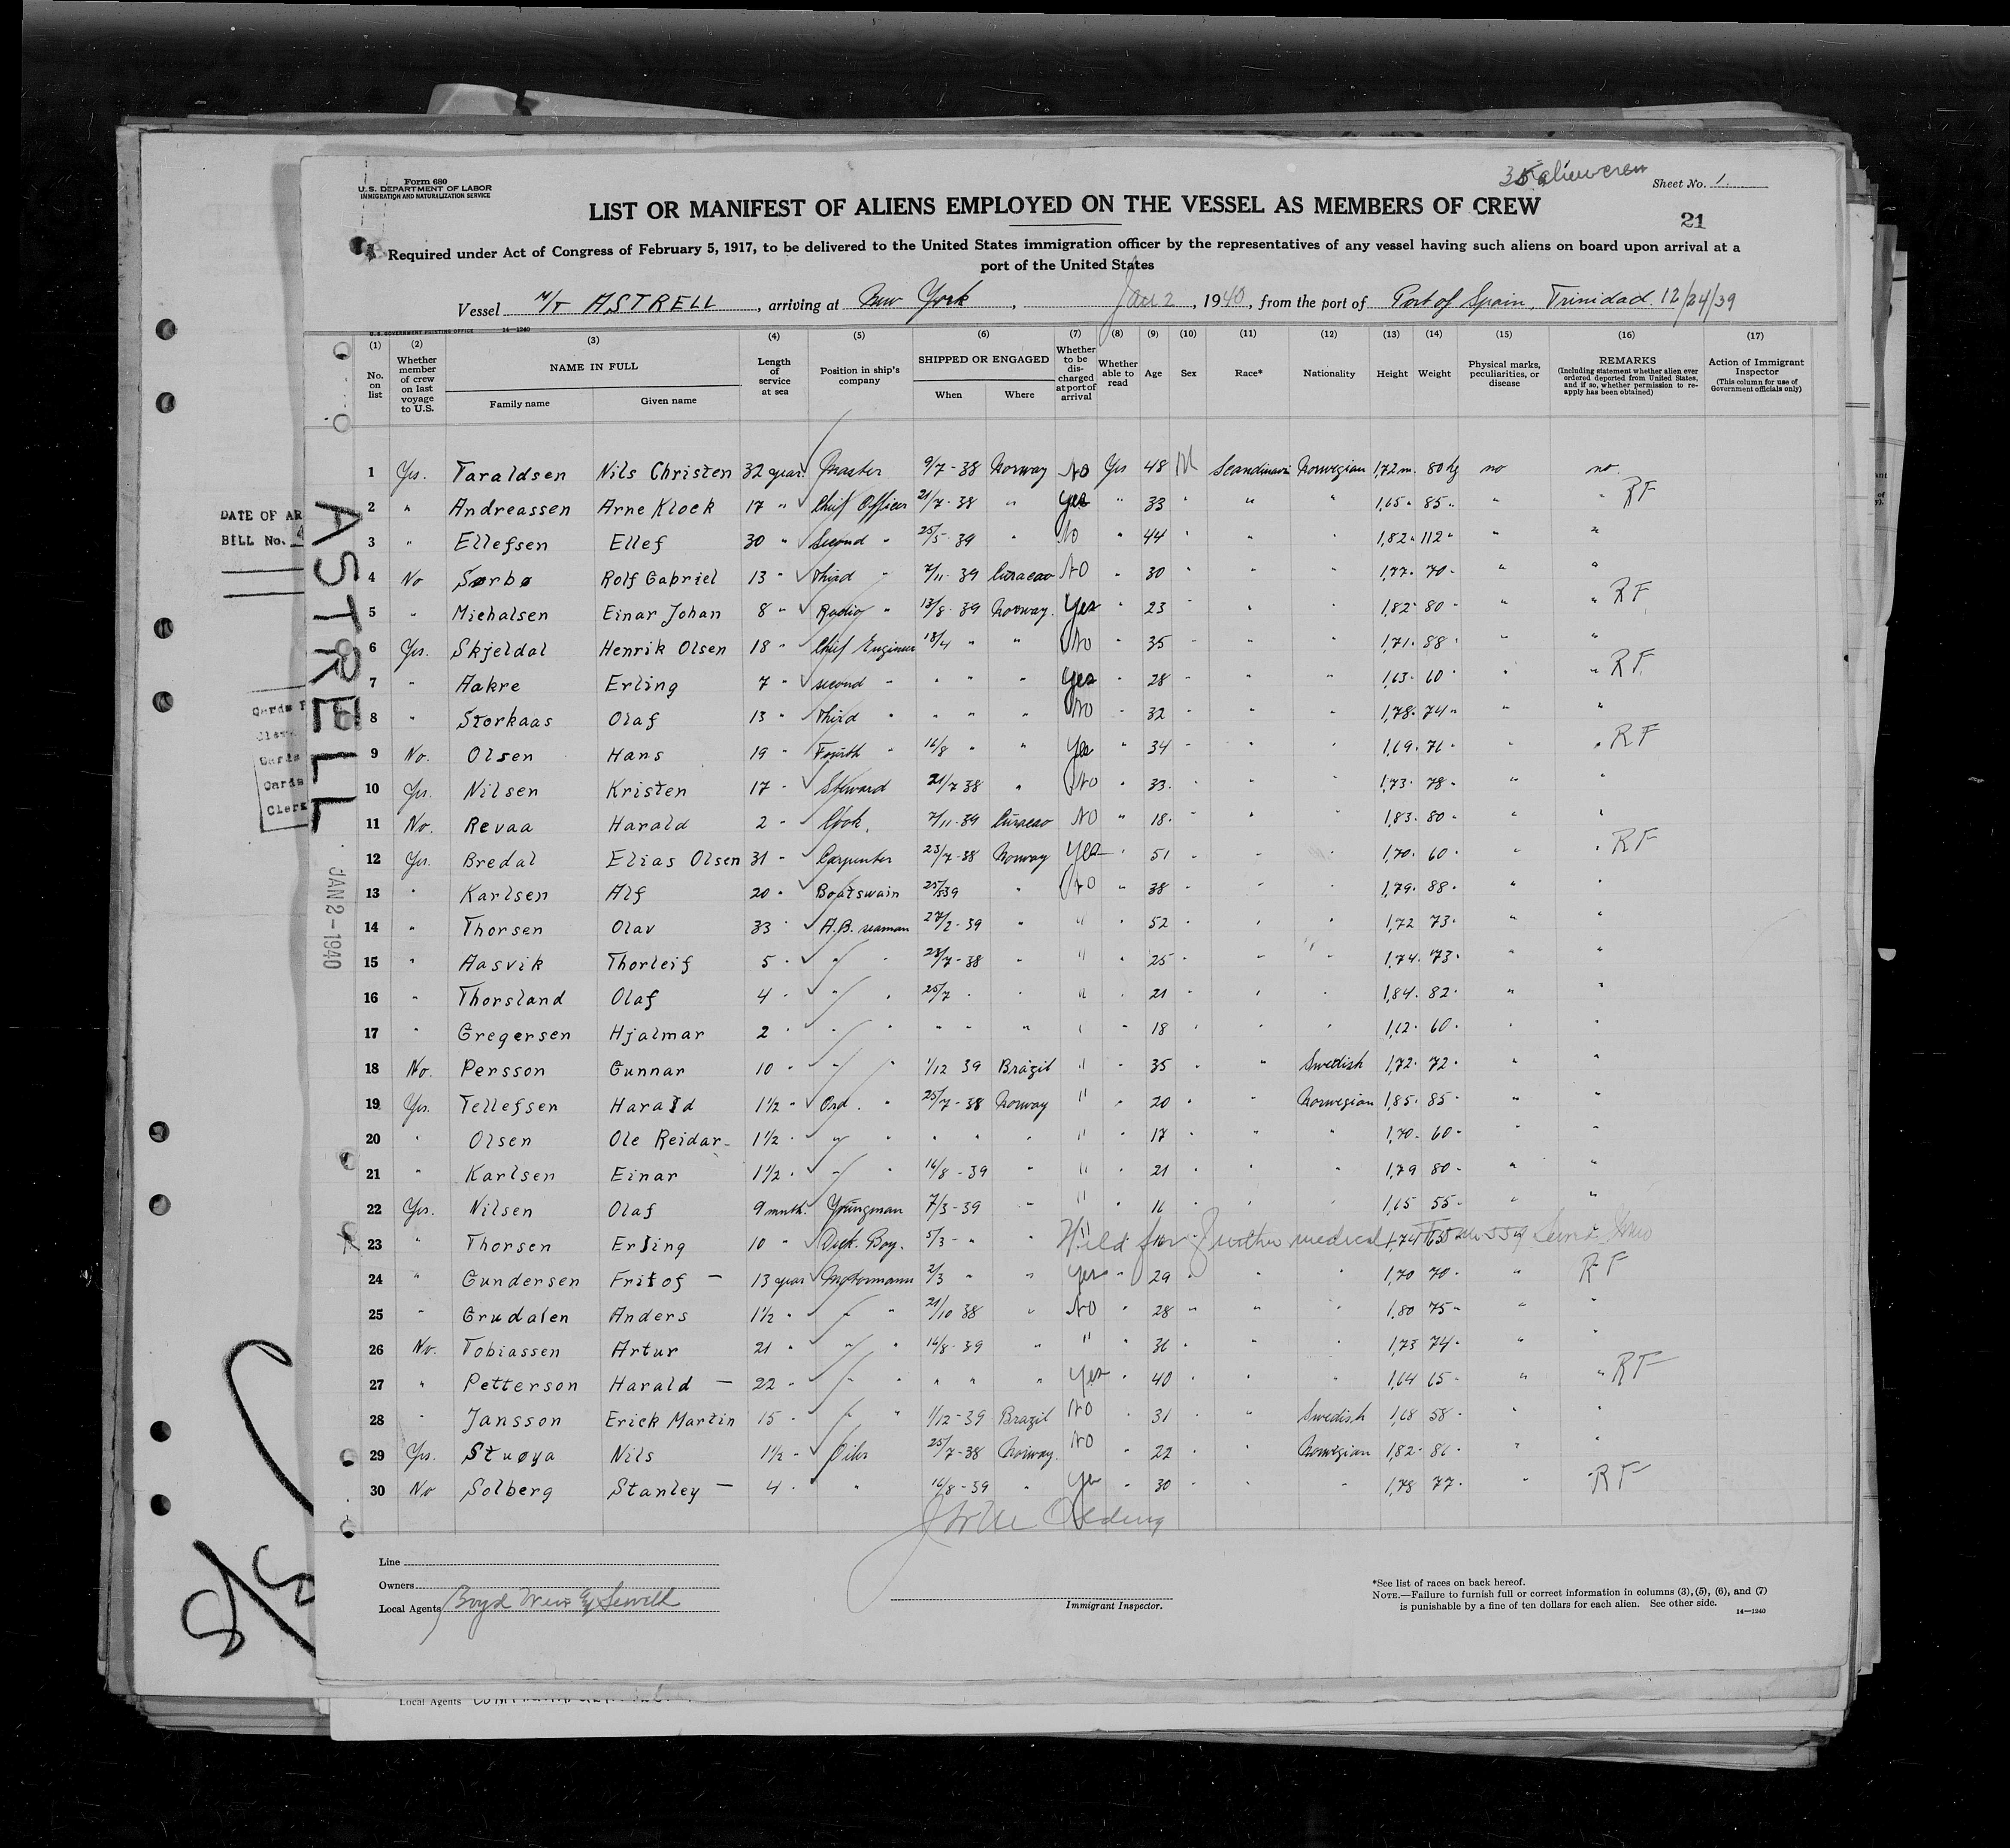 35 alien crew
Sheet No. 1
Form 680
U. S. DEPARTMENT OF LABOR
IMMIGRATION AND NATURALIZATION SERVICE
LIST OR MANIFEST OF ALIENS EMPLOYED ON THE VESSEL AS MEMBERS OF CREW
21
Required under Act of Congress of February 5, 1917, to be delivered to the United States immigration officer by the representatives of any vessel having such aliens on board upon arrival at a
port of the United States
Vessel M/T ASTRELL, arriving at New York, Jan 2, 1940, from the port of Port of Spain, Trinidad 12/24/39
U.S. GOVERNMENT PRINTING OFFICE 14—1240
(1) No. on list
(2) Whether member of crew on last voyage to U.S.
(3) NAME IN FULL Family name Given name
(4) Length of service at sea
(5) Position in ship's company
(6) SHIPPED OR ENGAGED When Where
(7) Whether to be discharged at port of arrival
(8) Whether able to read
(9) Age
(10) Sex
(11) Race*
(12) Nationality
(13) Height
(14) Weight
(15) Physical marks, peculiarities, or disease
(16) REMARKS (Including statement whether alien ever ordered deported from United States, and if so, whether permission to reapply has been obtained)
(17) Action of Immigrant Inspector (This column for use of Government officials only)
1 Yes. Taraldsen Nils Christen 32 year. Master 9/7-38 Norway No Yes 48 M Scandinavi Norwegian 1,72 m. 80 kg no no.
2 " Andreassen Arne Klock 17 " Chief Officer 21/7-38 " Yes " 33 " " " 1,65 " 85 " " " RF
3 " Ellefsen Ellef 30 " Second " 25/5-39 " No " 44 " " " 1,82 " 112 " " "
4 No Sørbø Rolf Gabriel 13 " Third " 7/11-39 Curacao No " 30 " " " 1,77 " 70 " " "
5 " Michalsen Einar Johan 8 " Radio " 13/8-39 Norway. Yes " 23 " " " 1,82 " 80 " " " RF
6 Yes. Skjeldal Henrik Olsen 18 " Chief Engineer 18/4 " " No 35 " 1,71 " 88 " " "
7 " Aakre Erling 7 " second " " " " Yes " 28 " " " 1,63 " 60 " " " RF
8 " Storkaas Olaf 13 " Third " " " " No " 32 " " " 1,78 " 74 " " "
9 No. Olsen Hans 19 " Fourth " 16/8 " " Yes " 34 " " " 1,69 " 76 " " " RF
10 Yes. Nilsen Kristen 17 " Steward 21/7 38 " No " 33 " " " 1,73 " 78 " " "
11 No. Revaa Harald 2 " Cook. 7/11-39 Curacao No " 18 " " " 1,83 " 80 " " "
12 Yes. Bredal Elias Olsen 31 " Carpenter 23/7-38 Norway Yes " 51 " " " 1,70 " 60 " " " RF
13 " Karlsen Alf 20 " Boatswain 25/5 39 " No " 38 " " " 1,79 " 88 " " "
14 " Thorsen Olav 33 " A.B. seaman 27/2-39 " " " 52 " " " 1,72 73 " " "
15 " Aasvik Thorleif 5 " " " 23/7-38 " " " 25 " " " 1,74 " 73 " " "
16 " Thorsland Olaf 4 " " " 25/7 " " " " 21 " " " 1,84 " 82 " " "
17 " Gregersen Hjalmar 2 " " " " " " " " 18 " " " 1,62 " 60 " " "
18 No. Persson Gunnar 10 " " " 1/12 39 Brazil " " 35 " " Swedish 1,72 " 72 " " "
19 Yes. Tellefsen Harald 1½ " Ord. " 25/7-38 Norway " " 20 " " Norwegian 1,85 " 85 " " "
20 " Olsen Ole Reidar 1½ " " " " " " " " 17 " " " 1,70 " 60 " " "
21 " Karlsen Einar 1½ " " " 16/8-39 " " " 21 " " " 1,79 80 " " "
22 Yes. Nilsen Olaf 9 mnth. Youngman 7/3-39 " " " 16 " " " 1,65 55 " " "
23 " Thorsen Erling 10 " Deck. Boy. 5/3- " " Held for further medical
24 " Gundersen Fritof — 13 year Motormann 2/3 " " Yes " 29 " " " 1,70 70 " " RF
25 " Grudalen Anders 1½ " " " 21/10 38 " No " 28 " " " 1,80 75 " " "
26 No. Tobiassen Artur 21 " " " 16/8-39 " " " 36 " " " 1,73 74 " " "
27 " Petterson Harald — 22 " " " " " " Yes " 40 " " " 1,64 65 " " " RF
28 " Jansson Erick Martin 15 " " " 1/12-39 Brazil No " 31 " " Swedish 1,68 58 " " "
29 Yes. Stuøya Nils 1½ " Oiler 25/7-38 Norway. No " 22 " " Norwegian 1,82 " 86 " " "
30 No Solberg Stanley — 4 " " 16/8-39 " Yes " 30 " " " 1,78 77 " " RF
Line
Owners
Local Agents Boyd Weir & Sewell
Immigrant Inspector.
*See list of races on back hereof.
NOTE.—Failure to furnish full or correct information in columns (3), (5), (6), and (7)
is punishable by a fine of ten dollars for each alien. See other side.
14—1240
ASTRELL
JAN 2 - 1940
DATE OF AR
BILL No.
Cards
Cards
Clerk
Local Agents